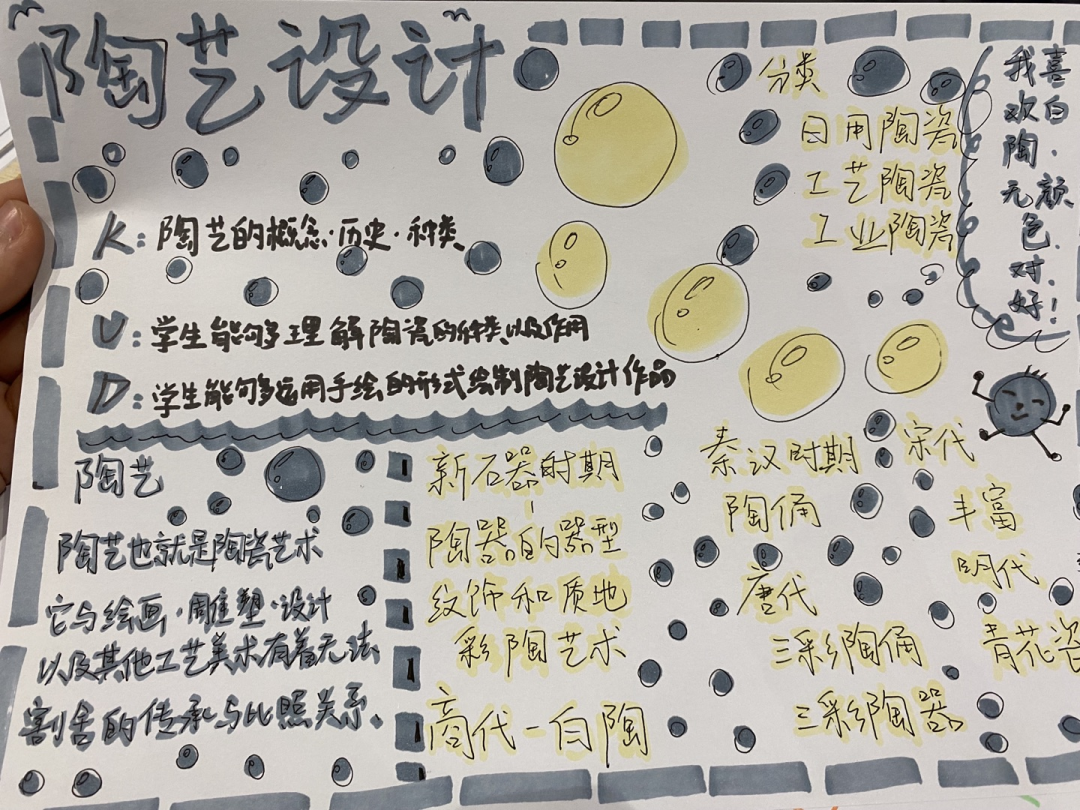 陶艺设计
K：陶艺的概念·历史·种类
U：学生能够理解陶瓷的种类以及作用
D：学生能够运用手绘的形式绘制陶艺设计作品
分类
日用陶瓷
工艺陶瓷
工业陶瓷
我喜
欢白
陶·
无颜
色
对·
好！
陶艺
陶艺也就是陶瓷艺术
它与绘画·雕塑·设计
以及其他工艺美术有着无法
割舍的传承与比照关系、
新石器时期
陶器的器型
纹饰和质地
彩陶艺术
商代－白陶
秦汉时期
陶俑
唐代
三彩陶俑
三彩陶器
宋代
丰富
明代
青花瓷